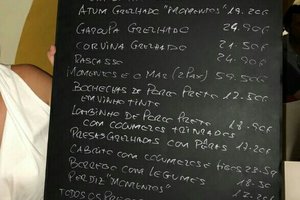 ATUM GRELHADO "MOMENTOS" 19.20€
GAROUPA GRELHADO 24.90€
CORVINA GRELHADO 21.50€
RASCASSO 24.90€
MOMENTOS E O MAR (2 PAX) 59.50€
BOCHECHAS DE PORCO PRETO 12.50€
EM VINHO TINTO
LOMBINHO DE PORCO PRETO
COM COGUMELOS TRINXADOS 17.90€
PRESAS GRELHADAS COM PÊRAS 17.20€
CABRITO COM COGUMELOS E
BORREGO COM LEGUMES 18.50
PERDIZ "MOMENTOS" 17.20€
TODOS OS